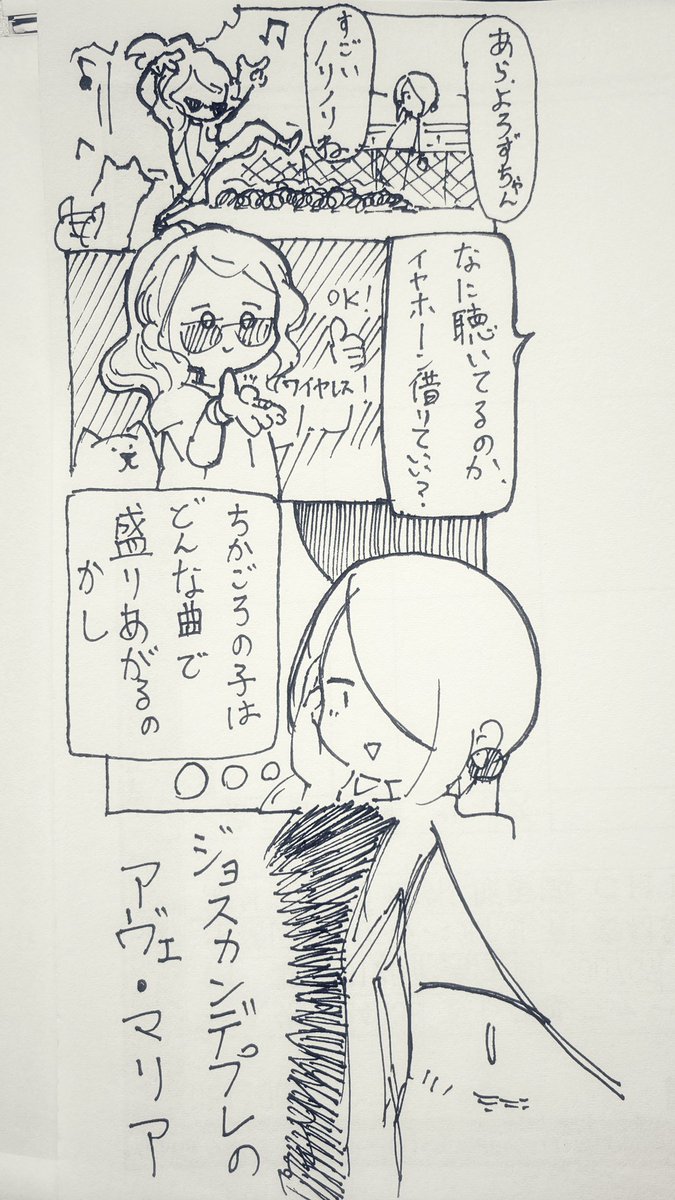 あら、よろずちゃん
すごい
ノリノリね
なに聴いてるのか、
イヤホーン借りていい？
OK!
ワイヤレス!
ちかごろの子は
どんな曲で
盛りあがるの
かし
ジョスカンデプレの
アヴェ・マリア